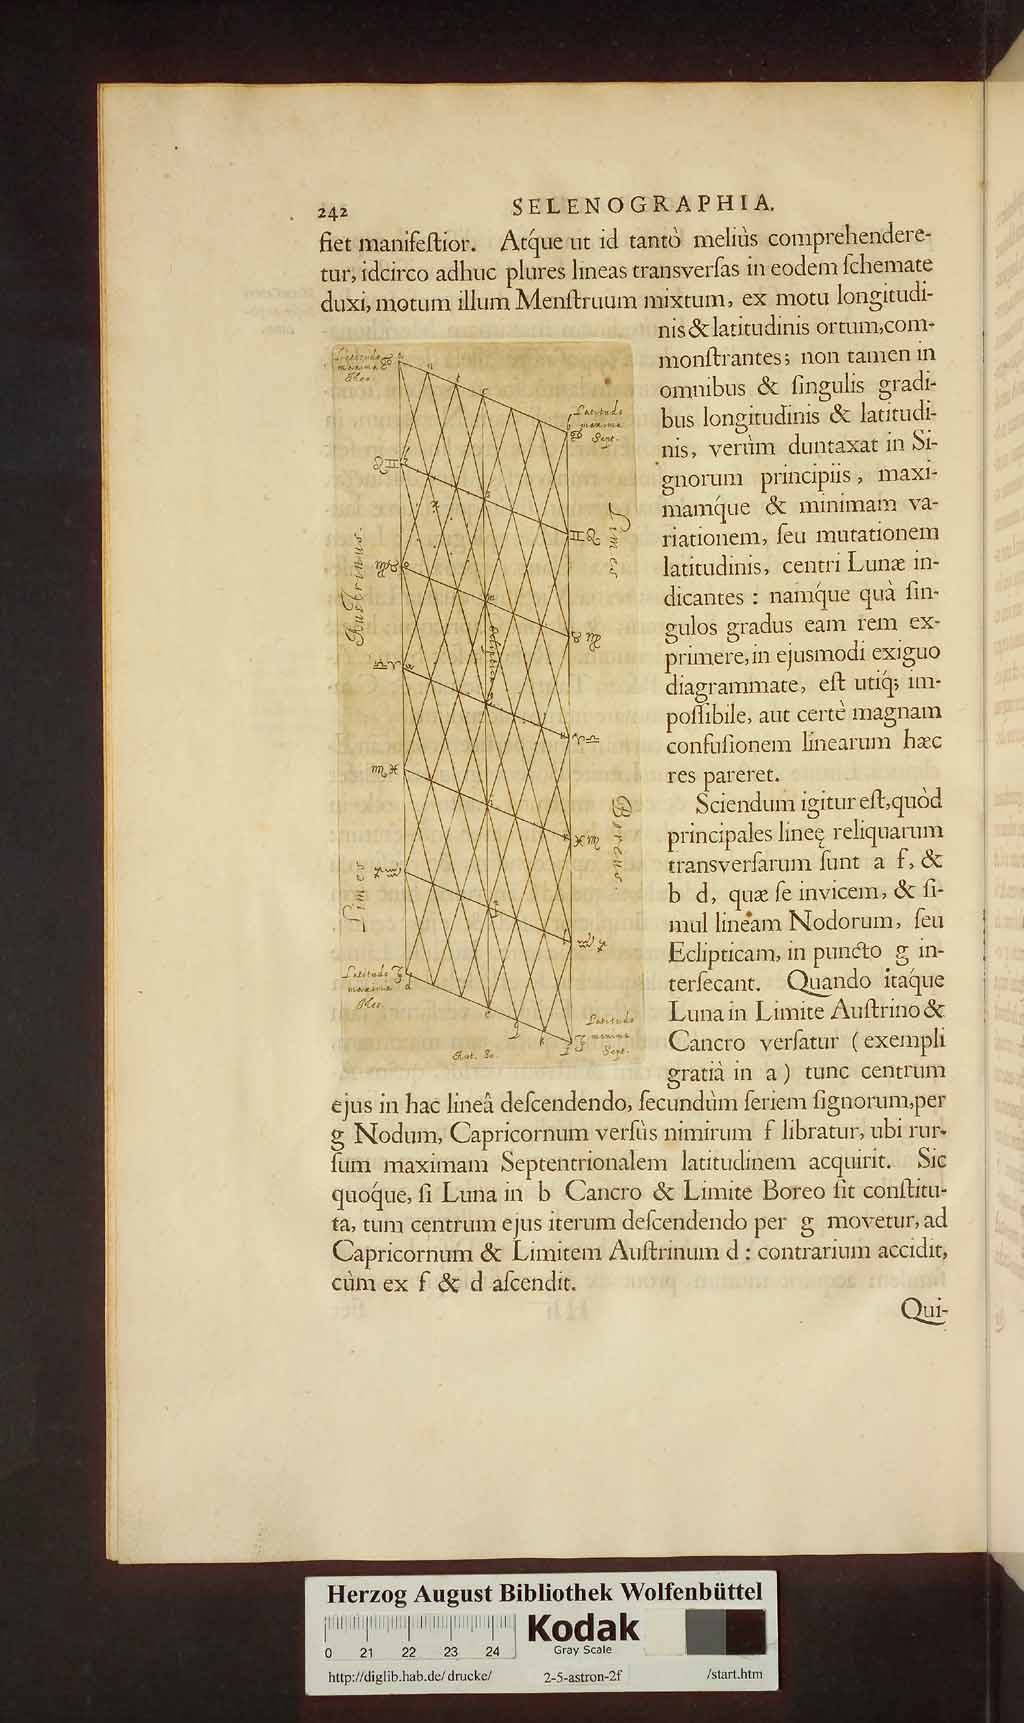 242 SELENOGRAPHIA.
fiet manifeſtior. Atq́ue ut id tantò meliùs comprehendere-
tur, idcirco adhuc plures lineas transverſas in eodem ſchemate
duxi, motum illum Menſtruum mixtum, ex motu longitudi-
nis & latitudinis ortum, com-
monſtrantes; non tamen in
omnibus & ſingulis gradi-
bus longitudinis & latitudi-
nis, verùm duntaxat in Si-
gnorum principiis, maxi-
mamq́ue & minimam va-
riationem, ſeu mutationem
latitudinis, centri Lunæ in-
dicantes : namq́ue quà ſin-
gulos gradus eam rem ex-
primere, in ejusmodi exiguo
diagrammate, eſt utiq́; im-
poſſibile, aut certè magnam
confuſionem linearum hæc
res pareret.
Sciendum igitur eſt, quòd
principales lineę reliquarum
transverſarum ſunt a f, &
b d, quæ ſe invicem, & ſi-
mul lineam Nodorum, ſeu
Eclipticam, in puncto g in-
terſecant. Quando itaq́ue
Luna in Limite Auſtrino &
Cancro verſatur ( exempli
gratiâ in a ) tunc centrum
ejus in hac lineâ deſcendendo, ſecundùm ſeriem ſignorum, per
g Nodum, Capricornum verſùs nimirum f libratur, ubi rur-
ſum maximam Septentrionalem latitudinem acquirit. Sic
quoq́ue, ſi Luna in b Cancro & Limite Boreo ſit conſtitu-
ta, tum centrum ejus iterum deſcendendo per g movetur, ad
Capricornum & Limitem Auſtrinum d : contrarium accidit,
cùm ex f & d aſcendit.
Qui-
Latitudo
maxima
Mer.
Latitudo
maxima
Sept.
Limes
Austrinus.
Ecliptica
Limes
Boreus.
Latitudo
maxima
Mer.
Latitudo
maxima
Sept.
Herzog August Bibliothek Wolfenbüttel
0 21 22 23 24
Kodak
Gray Scale
http://diglib.hab.de/drucke/ 2-5-astron-2f /start.htm